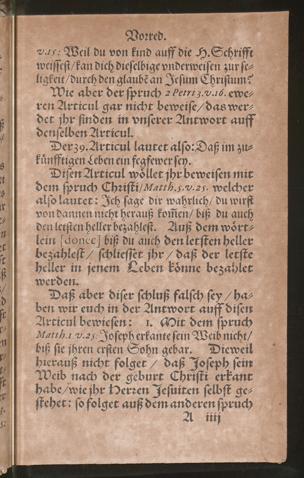 Vorred.
v.15: Weil du von kind auff die H. Schrifft
weissest / kan dich dieselbige vnderweisen zur se-
ligkeit / durch den glaubē an Jesum Christum?
Wie aber der spruch 2 Petri 3. v. 16. ewe-
ren Articul gar nicht beweise / das wer-
det jhr finden in vnserer Antwort auff
denselben Articul.
Der 39. Articul lautet also: Daß im zu-
künfftigen Leben ein fegfewer sey.
Disen Articul wöllet jhr beweisen mit
dem spruch Christi / Matth. 5. v. 25. welcher
also lautet: Ich sage dir warlich / du wirst
von dannen nicht herauß kom̄en / biß du auch
den letsten heller bezahlest. Auß dem wört-
lein [donec] biß du auch den letsten heller
bezahlest / schliesset jhr / daß der letste
heller in jenem Leben könne bezahlet
werden.
Daß aber diser schluß falsch sey / ha-
ben wir euch in der Antwort auff disen
Articul bewiesen: 1. Mit dem spruch
Matth. 1. v. 25. Joseph erkante sein Weib nicht /
biß sie jhren ersten Sohn gebar. Dieweil
hierauß nicht folget / daß Joseph sein
Weib nach der geburt Christi erkant
habe / wie jhr Herren Jesuiten selbst ge-
stehet: so folget auß dem anderen spruch
A iiij